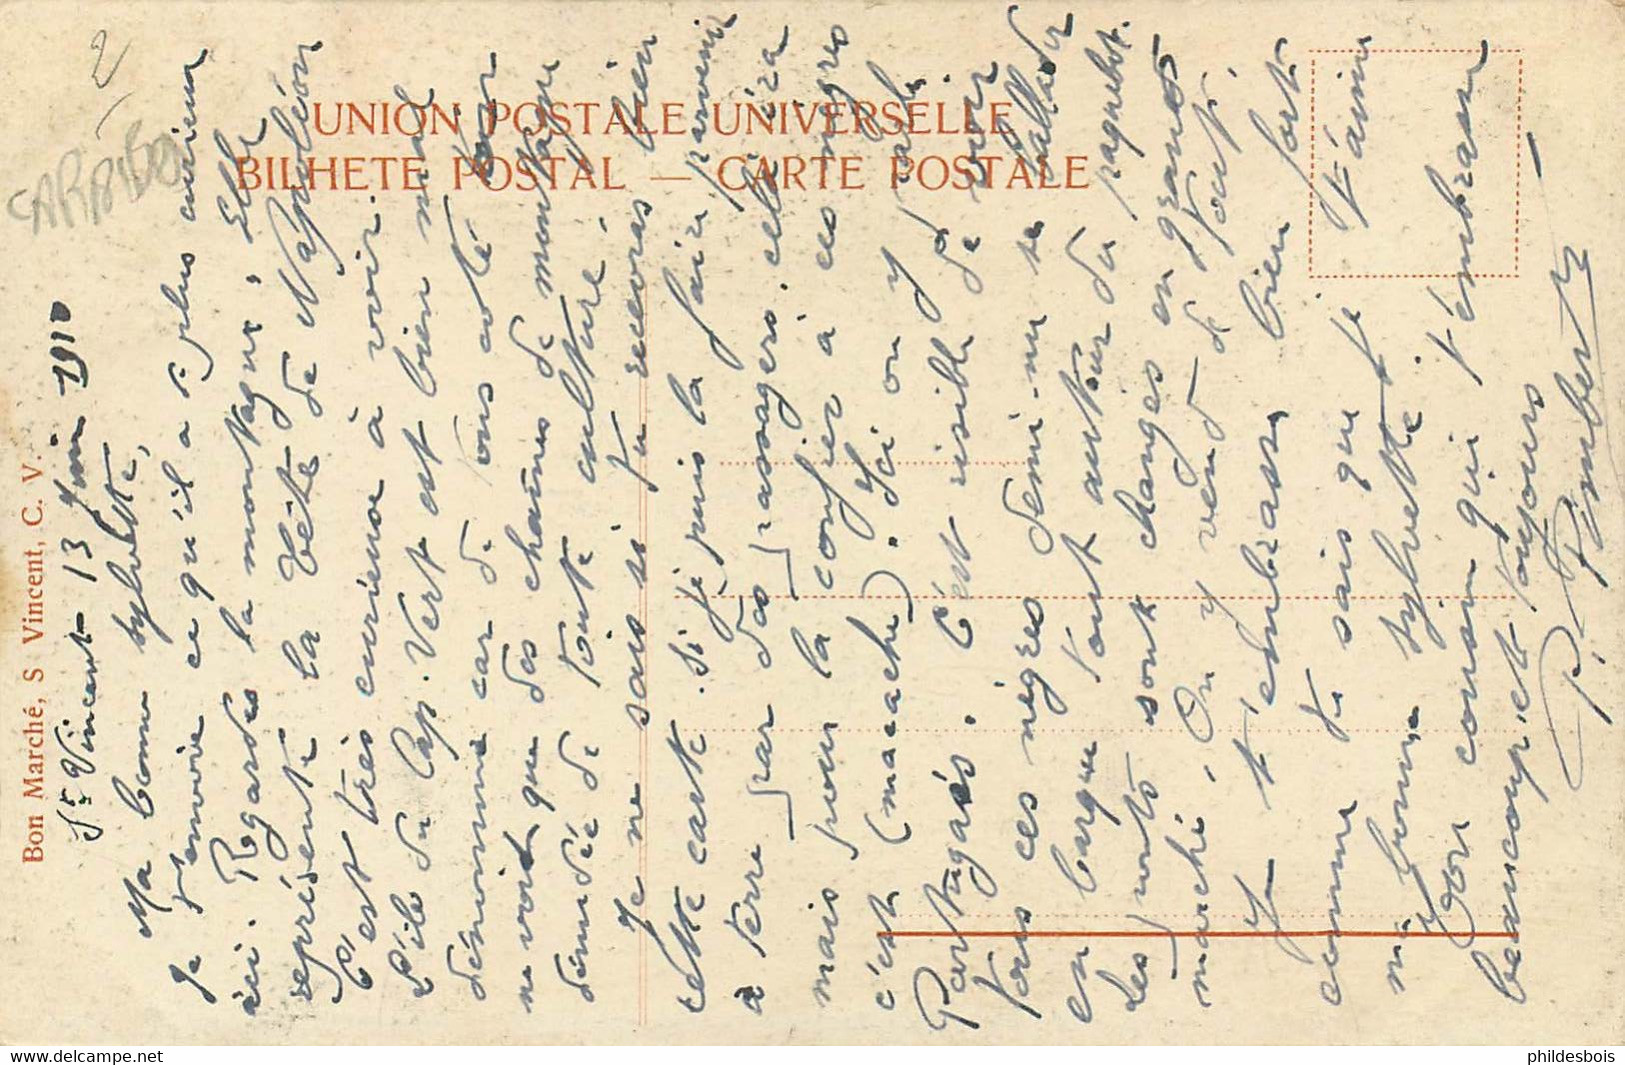 UNION POSTALE UNIVERSELLE
BILHETE POSTAL — CARTE POSTALE
Bon Marché, S Vincent, C. V.
CARABIDO
2
St Vincent 13 Juin 1910
Ma bonne Sylvette,
Je t'envoie ce qu'il a de plus curieux
ici. Regardes la montagne, elle
représente la tête de Napoléon
C'est très curieux à voir.
L'ile du Cap. Vert est bien mal
dénommé car de tous coté on
ne voit que des chaines de montagne
dénudée de toute culture.
Je ne sais si tu recevras bien
cette carte. Si je puis la faire parvenir
a terre par des passagers, cela ira
mais pour la confier à ces nègres
c'est (macache). Ici on y parle
Portugais. C'est risible de voir
tous ces nègres demi-nu se ballader
en barque tout autour du paquebot.
Les ponts sont changés en grand
marché. On y vend de tout.
Je t'embrasse bien fort
comme tu sais que je t'aime
ma bonne Sylvette.
Ton cousin qui t'embrasse
beaucoup et toujours —
P. Pimbert
phildesbois